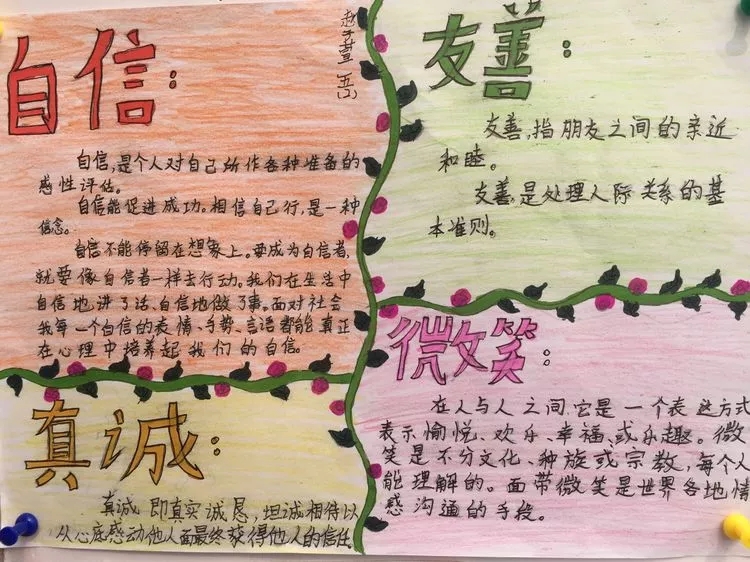 自信：
自信，是个人对自己所作各种准备的
感性评估。
自信能促进成功。相信自己行，是一种
信念。
自信不能停留在想象上。要成为自信者，
就要像自信者一样去行动。我们在生活中
自信地讲了话、自信地做了事。面对社会
我每一个自信的表情、手势、言语都能真正
在心理中培养起我们的自信。
五(2)
友善：
友善，指朋友之间的亲近
和睦。
友善，是处理人际关系的基
本准则。
真诚：
真诚 即真实诚恳，坦诚相待以
从心底感动他人面最终获得他人的信任
微笑：
在人与人之间，它是一个表达方式
表示愉悦、欢乐、幸福、或乐趣。微
笑是不分文化、种族或宗教，每个人
能理解的。面带微笑是世界各地情
感沟通的手段。